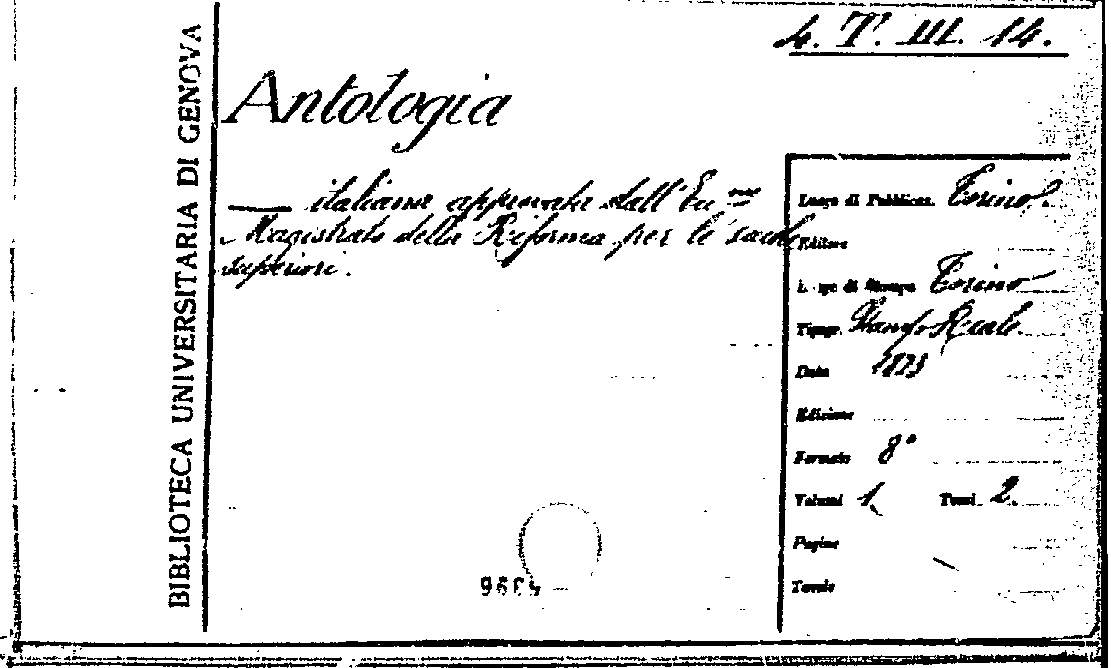 4. T. III. 14.
BIBLIOTECA UNIVERSITARIA DI GENOVA
Antologia
—— italiana approvata dall'Ecc.mo
Magistrato della Riforma per le scuole
superiori.
Luogo di Pubblicaz. Torino.
Editore
Luogo di Stampa Torino
Tipogr. Stamp. Reale.
Data
Edizione
Formato 8°
Volumi 1, Tomi 2.
Pagine
Tavole